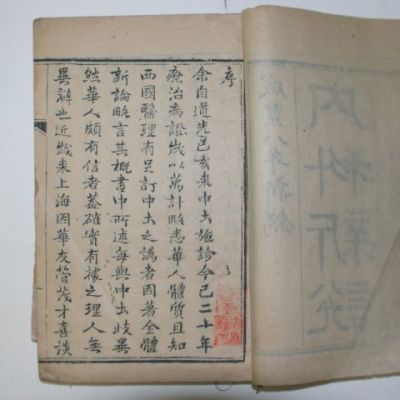 內科新說
咸豐八年新鐫
序
余自道光己亥來中土施診今已二十年
療治病證歲以萬計略悉華人體質且知
西國醫理有足訂中土之譌者因著全體
新論略言其概書中所述每與中土歧異
然華人頗有信者蓋確實有據之理人無
異辭也近歲來上海因華友管茂才喜談